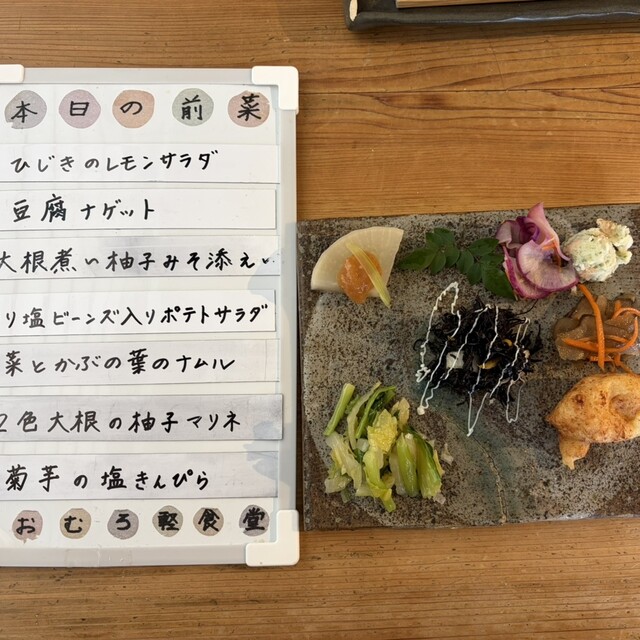 本日の前菜
ひじきのレモンサラダ
豆腐ナゲット
大根煮い柚子みそ添え
り塩ビーンズ入りポテトサラダ
菜とかぶの葉のナムル
2色大根の柚子マリネ
菊芋の塩きんぴら
おむろ軽食堂